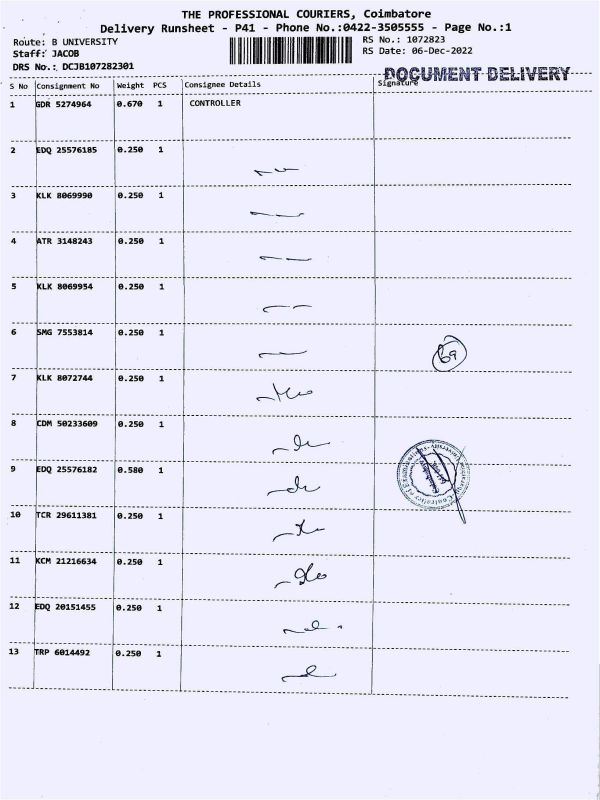 THE PROFESSIONAL COURIERS, Coimbatore
Delivery Runsheet - P41 - Phone No.:0422-3505555 - Page No.:1
Route: B UNIVERSITY
RS No.: 1072823
Staff: JACOB
RS Date: 06-Dec-2022
DRS No.: DCJB107282301
DOCUMENT DELIVERY
S No Consignment No Weight PCS Consignee Details Signature
1 GDR 5274964 0.670 1 CONTROLLER
2 EDQ 25576185 0.250 1
3 KLK 8069990 0.250 1
4 ATR 3148243 0.250 1
5 KLK 8069954 0.250 1
6 SMG 7553814 0.250 1
7 KLK 8072744 0.250 1
8 CDM 50233609 0.250 1
9 EDQ 25576182 0.580 1
10 TCR 29611381 0.250 1
11 KCM 21216634 0.250 1
12 EDQ 20151455 0.250 1
13 TRP 6014492 0.250 1